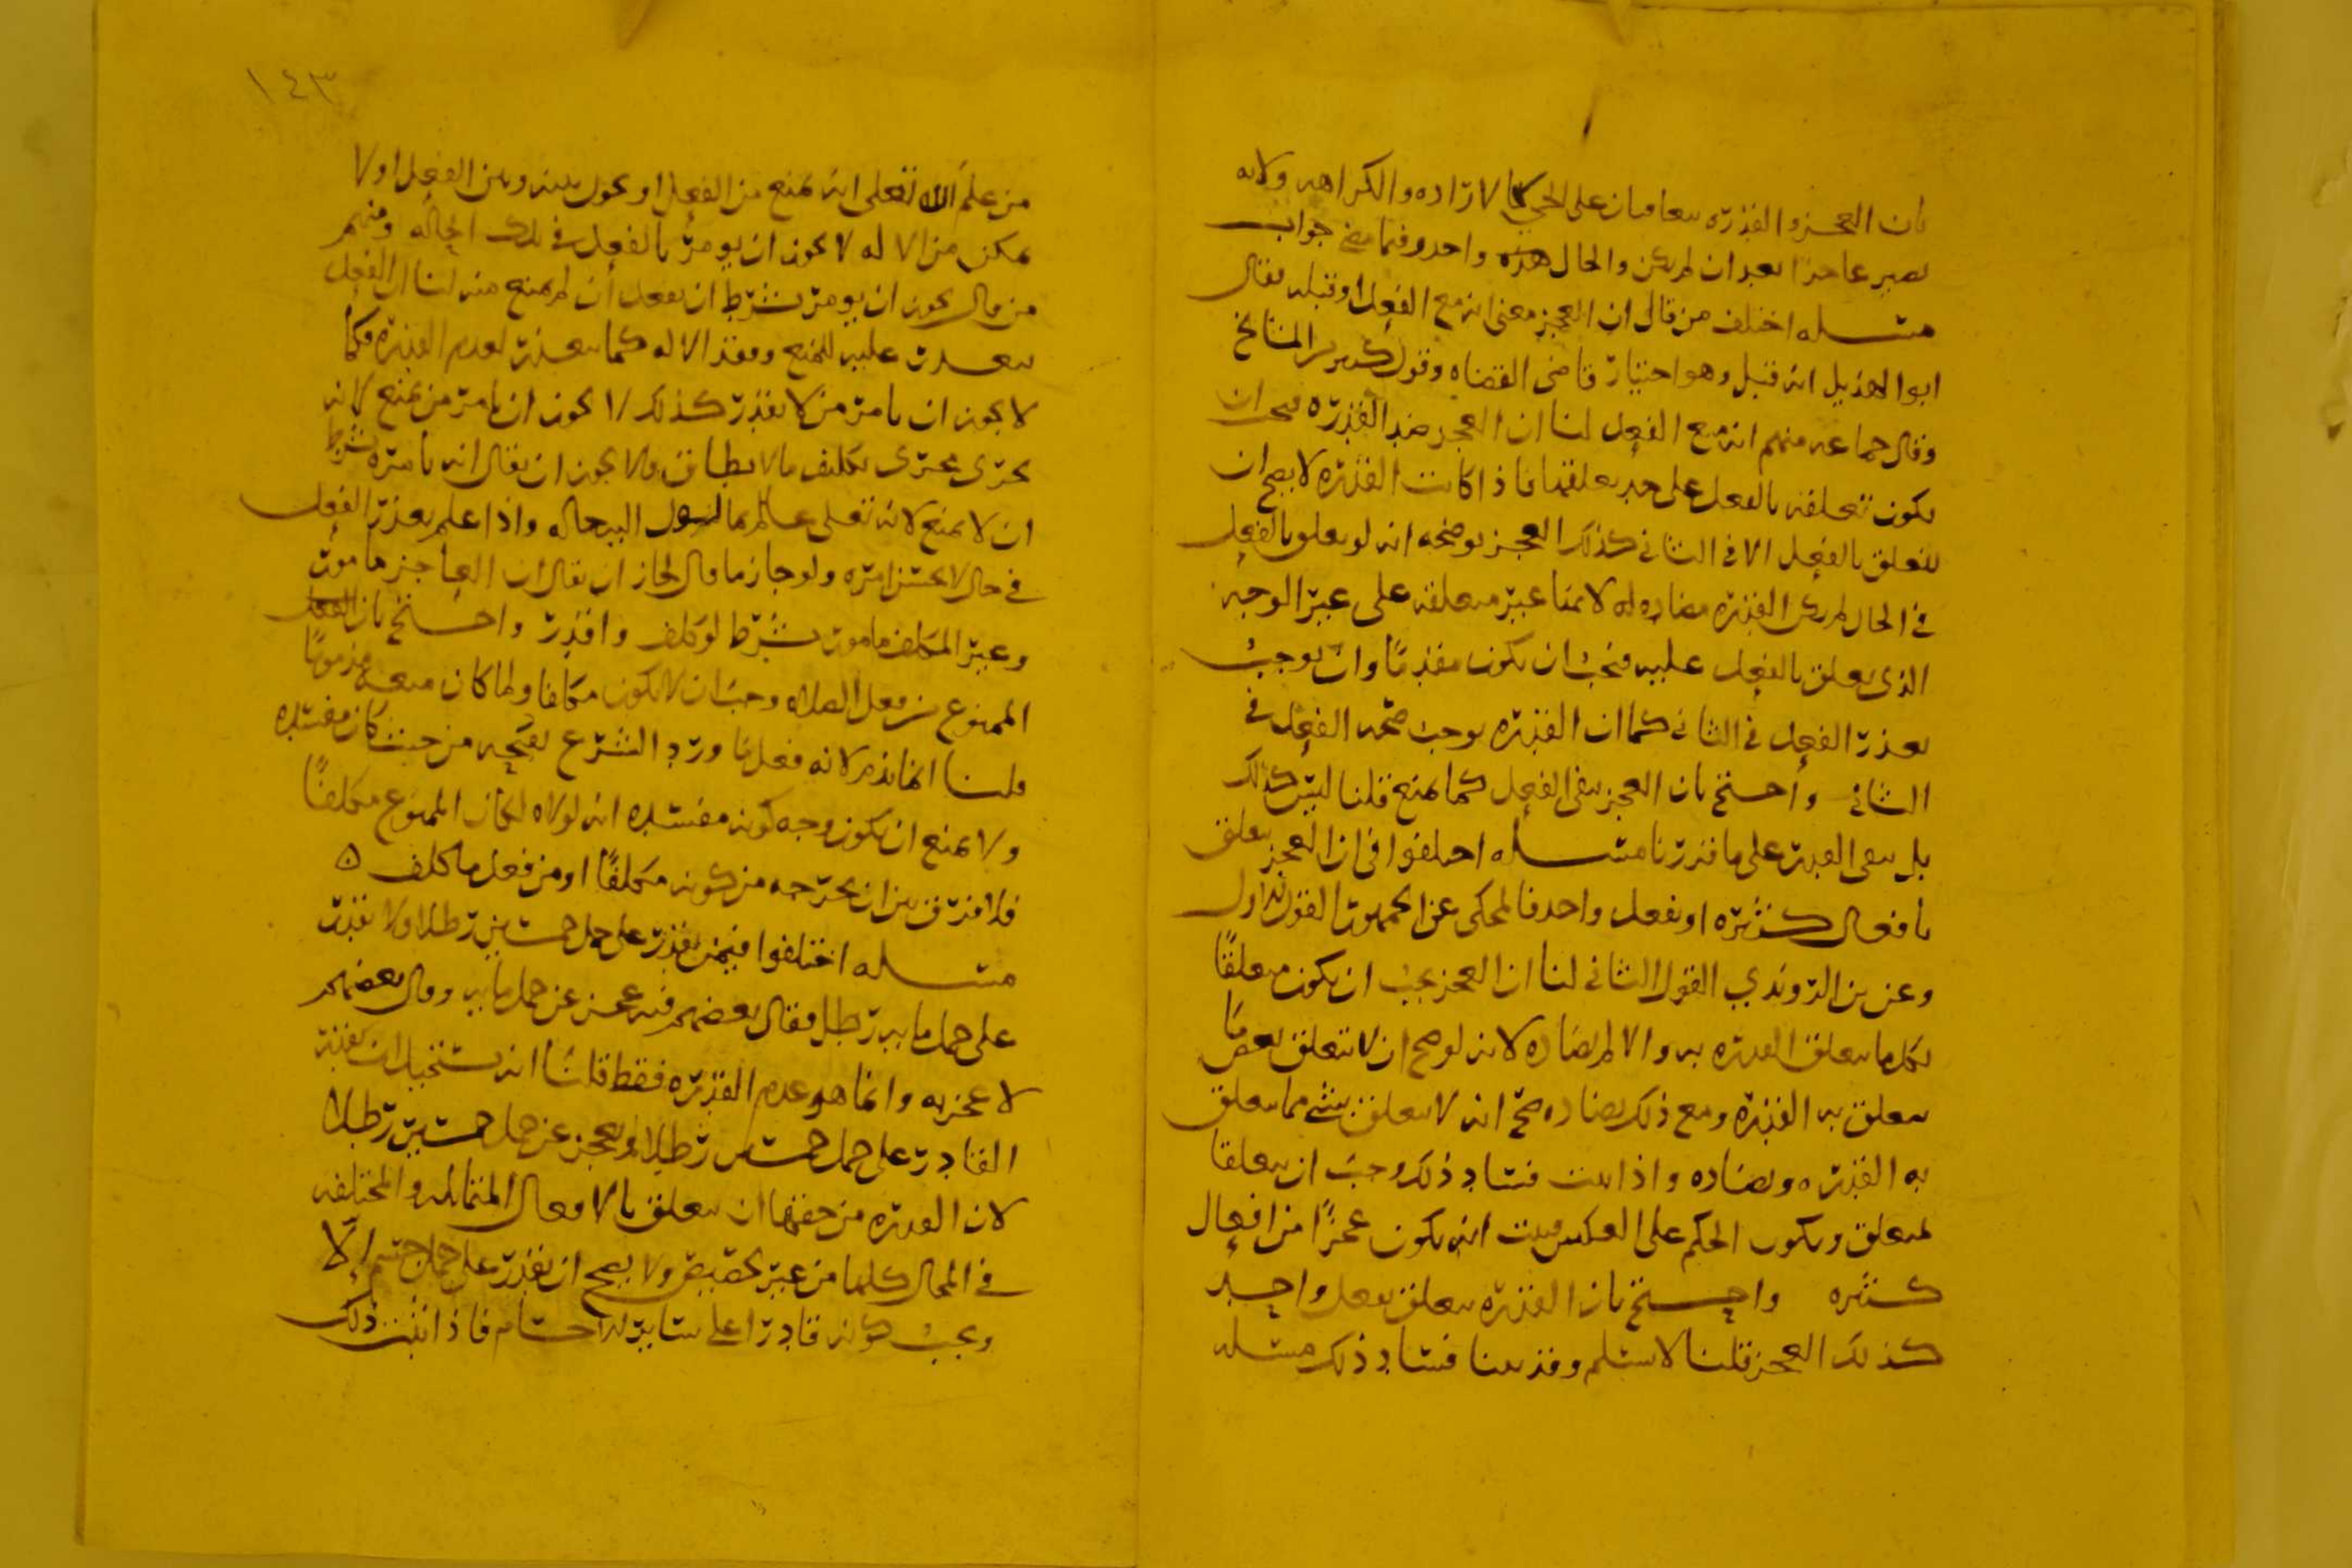 بان العجز والقدره يتعاقبان على الحي كالارادة والكراهه ولانه
يصير عاجزًا بعد ان لم يكن والحال هذه واحد وفيما مضى جواب
مسله اختلف من قال ان العجز معنى انه مع الفعل او قبله فقال
ابو الهذيل انه قبل وهو اختيار قاضى القضاه وقول كثير من المشايخ
وقال جماعه منهم انه مع الفعل لنا ان العجز ضد القدره فيجب ان
يكون تعلقه بالفعل على حد تعلقها فاذا كانت القدره لا يصح ان
يتعلق بالفعل الا في الثاني كذلك العجز يوضحه انه لو تعلق بالفعل
في الحال لم يكن القدره مضاده له لانها غير متعلقه على غير الوجه
الذي يتعلق بالفعل عليه فيجب ان يكون مقدمًا وان يوجب
تعذر الفعل في الثاني كما ان القدره يوجب صحه الفعل في
الثاني واحتج بان العجز ينفى الفعل كما يمنع قلنا ليس كذلك
بل ينفى القدره على ما قدرنا مسله اختلفوا في ان العجز يتعلق
بافعال كثيره او بفعل واحد فالمحكى عن الجمهور القول الاول
وعن بن الروندي القول الثاني لنا ان العجز يجب ان يكون متعلقًا
بكل ما يتعلق القدره به والا لم يضاده لانه لو صح ان لا يتعلق ببعض ما
يتعلق به القدره ومع ذلك يضاده صح انه لا يتعلق بشي مما يتعلق
به القدره ويضاده واذا ثبت فساد ذلك وجب ان يتعلقا
بمتعلق ويكون الحكم على العكس فيثبت انه يكون عجزًا من افعال
كثيره واحتج بان القدره يتعلق بفعل واحد
كذلك العجز قلنا لا نسلم وقد بينا فساد ذلك مسله
١٤٣
من علم الله تعلى انه يمنع من الفعل او يحول بينه وبين الفعل او لا
يمكن من الاله لا يجوز ان يومر بالفعل في تلك الحاله ومنهم
من قال يجوز ان يومر بشرط ان يفعل ان لم يمنع منه لنا ان الفعل
يتعذر عليه للمنع وفقد الاله كما يتعذر لعدم القدره فكما
لا يجوز ان يامر من لا يقدر كذلك لا يجوز ان يامر من يمنع لانه
يجرى مجرى تكليف ما لا يطاق ولا يجوز ان يقال انه يامره بشرط
ان لا يمنع لانه تعلى عالم بما يؤول اليه حاله واذا علم تعذر الفعل
في حال لا يحسن امره ولو جاز ما قال لجاز ان يقال ان العاجز مامور
وغير المكلف مامور بشرط لو كلف واقدر واحتج بان الفعل
الممنوع من فعل الصلاه وجب ان لا يكون مكلفا ولما كان منعه مذمومًا
قلنا انما يذم لانه فعل ما ورد الشرع بقبحه من حيث كان مفسده
ولا يمنع ان يكون وجه كونه مفسده انه لولاه لكان الممنوع مكلفًا
فلا فرق بين ان يخرجه من كونه مكلفًا او من فعل ما كلف ه
مسله اختلفوا فيمن يقدر على حمل خمسين رطلا ولا يقدر
على حمل مايه رطل فقال بعضهم فيه عجز عن حمل مايه وقال بعضهم
لا عجز به وانما هو عدم القدره فقط قلنا انه يستحيل ان يقدر
القادر على حمل خمسين رطلا ويعجز عن حمل خمسين رطلا
لان القدره من حقها ان يتعلق بالافعال المتماثله والمختلفه
في المحال كلها من غير تخصيص ولا يصح ان يقدر على حمل جسم الا
ويجب كونه قادرا على ساير الاجسام فاذا ثبت ذلك